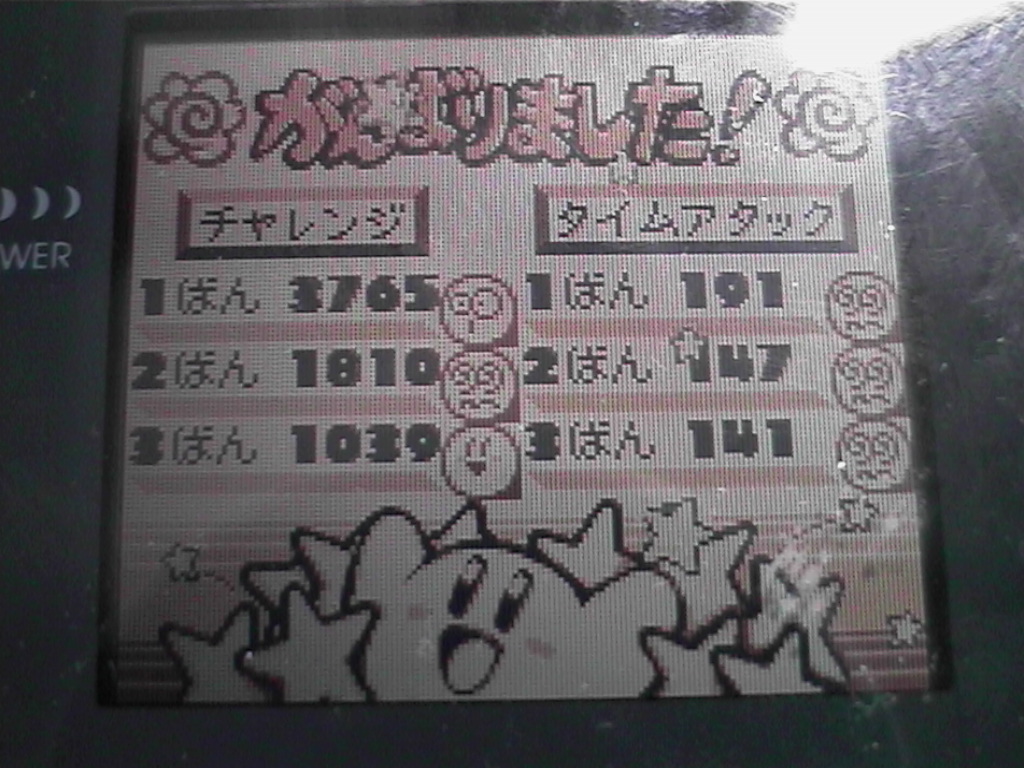 がんばりました!
チャレンジ タイムアタック
1ばん 3765 1ばん 191
2ばん 1810 2ばん 147
3ばん 1039 3ばん 141
WER